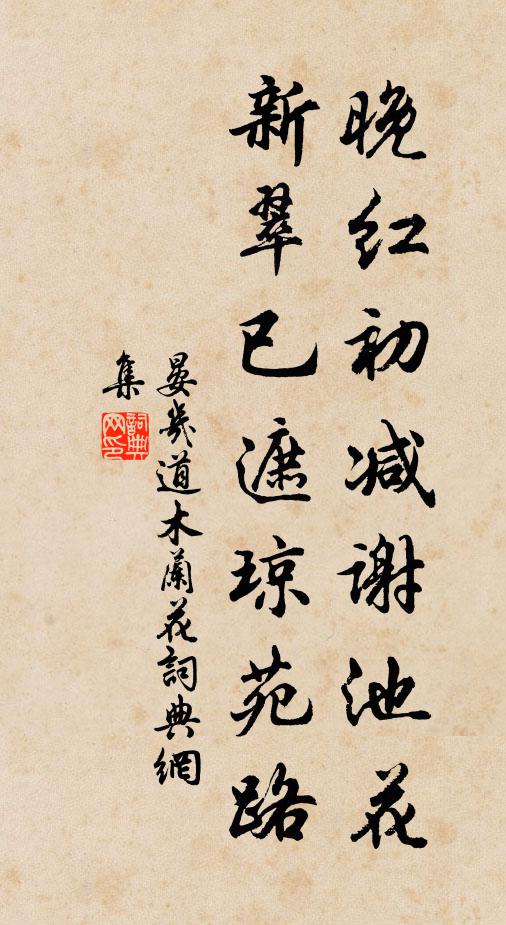 晚红初减谢池花
新翠已遮琼苑路
晏幾道木蘭花詞典網
集
詞典網印